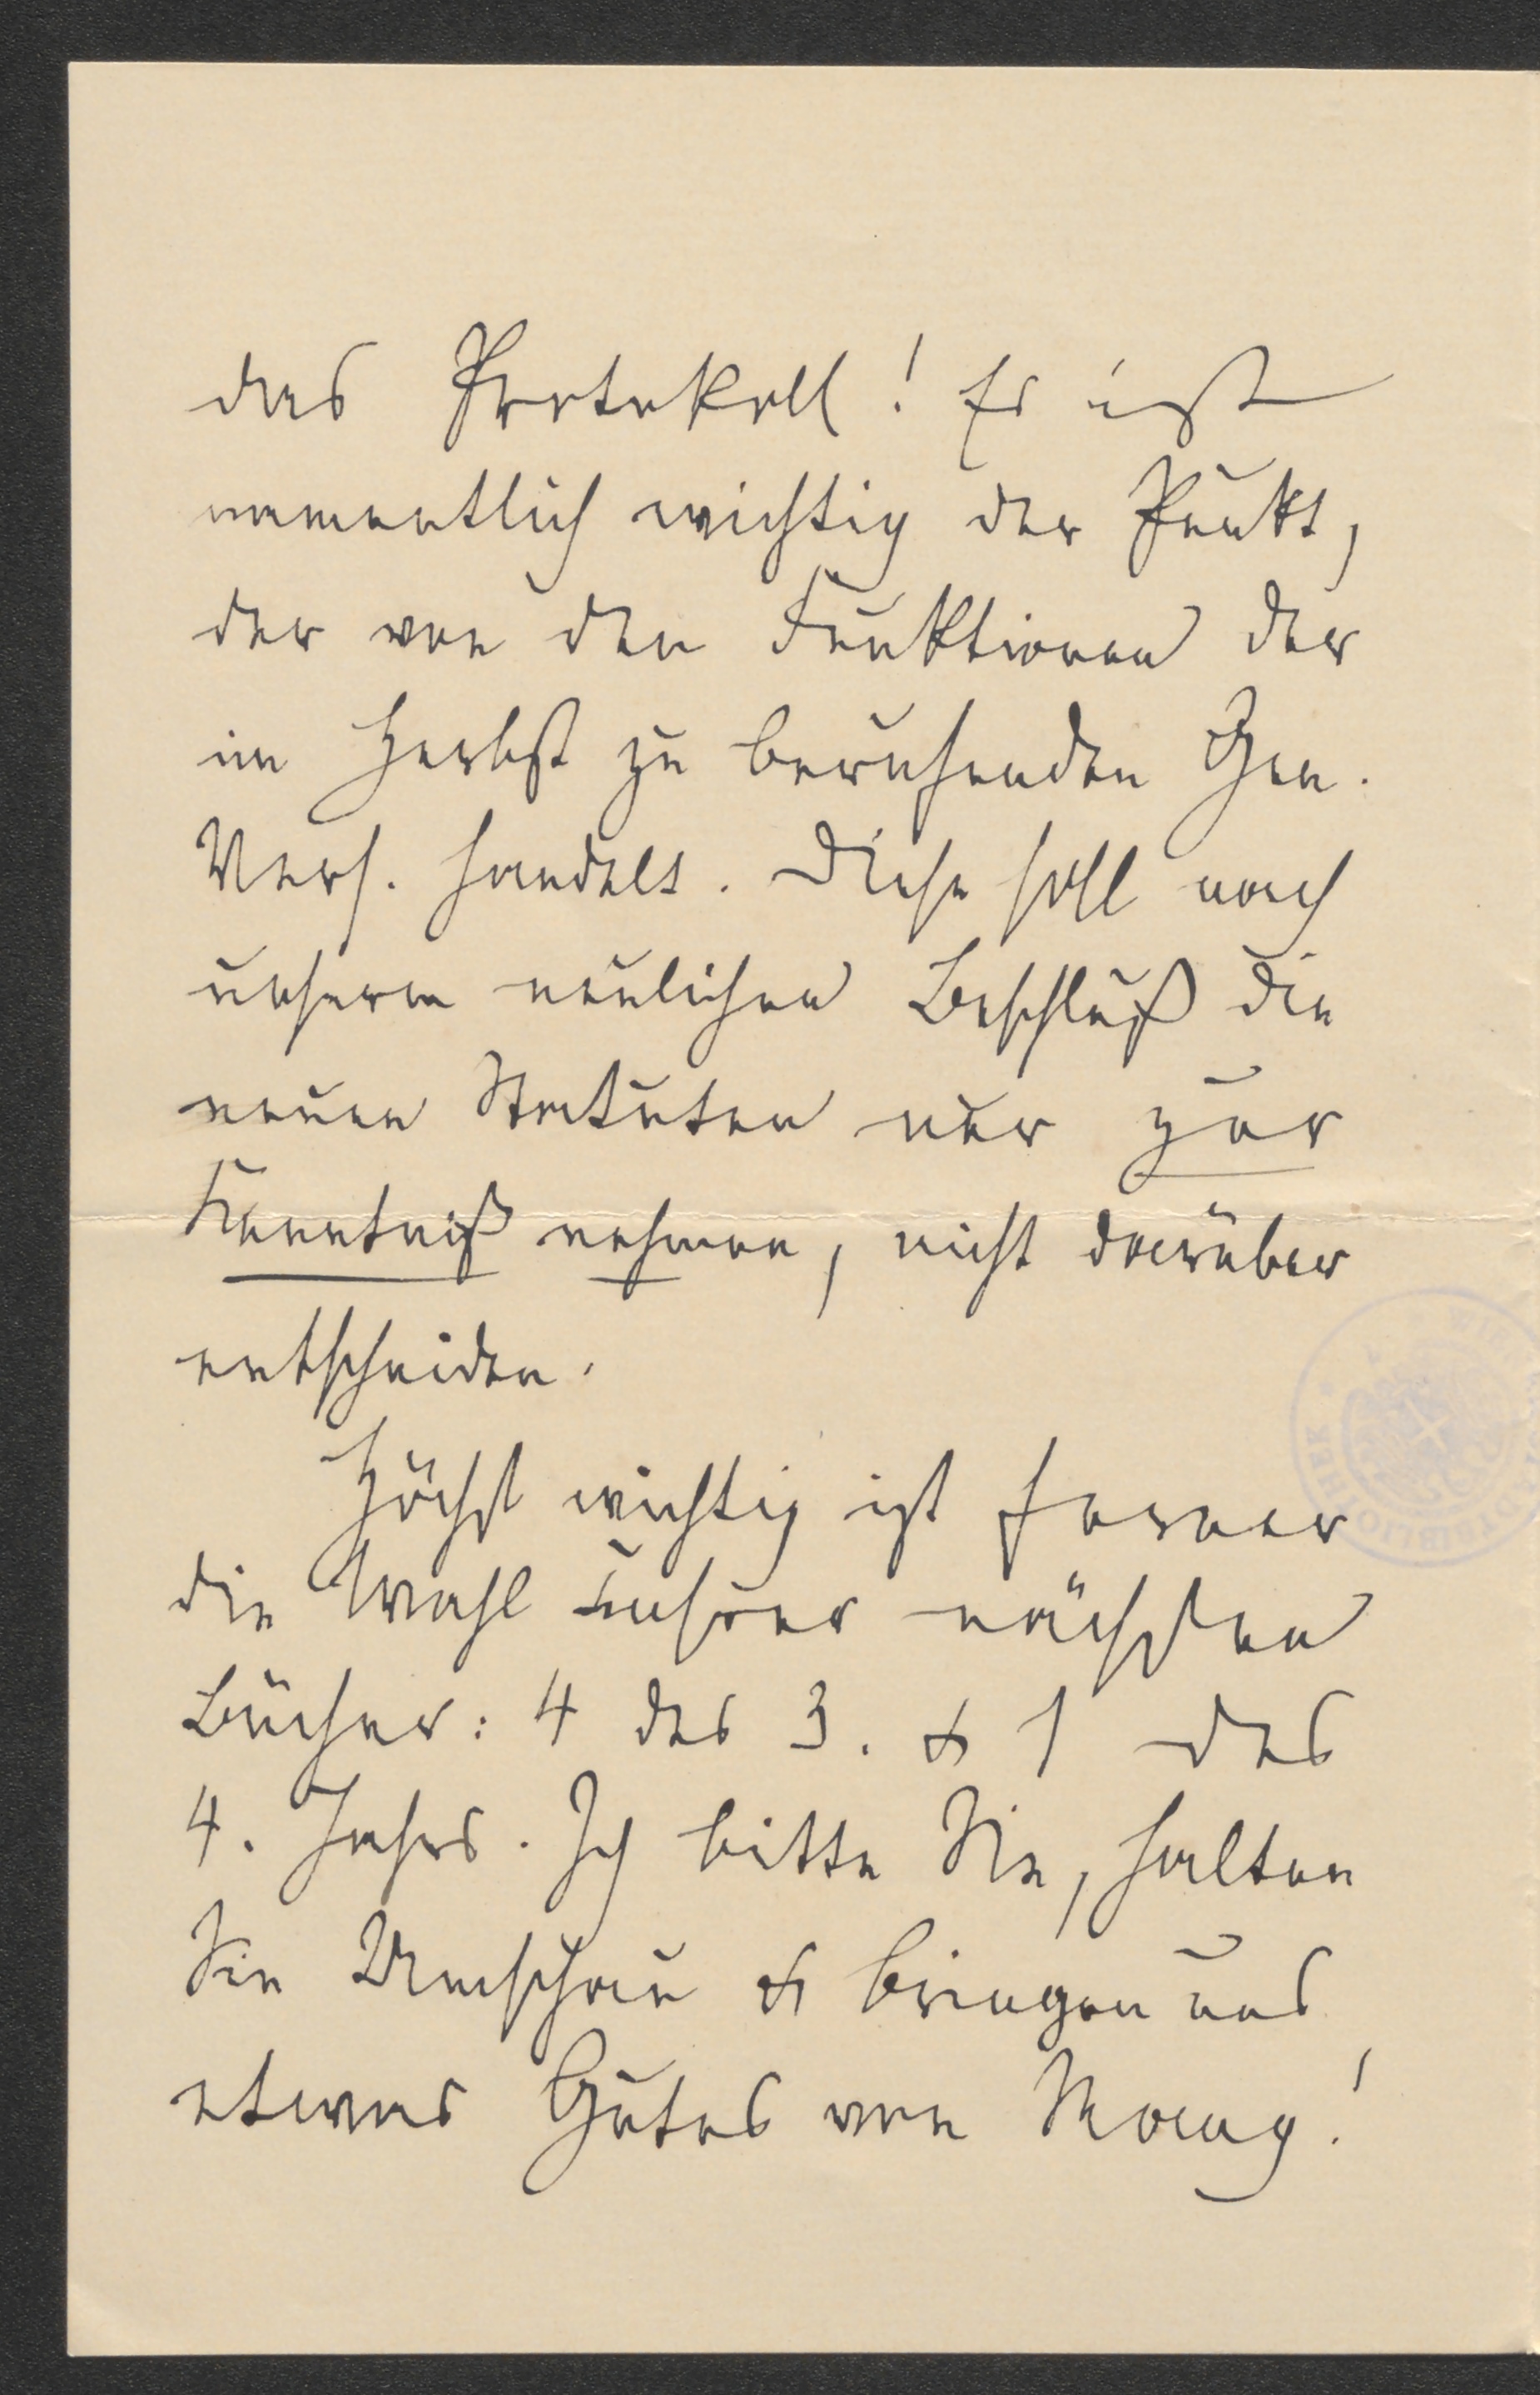 das Protokoll! Es ist
namentlich wichtig der Punkt,
der von den Funktionen der
im Herbst zu berufenden Gen.
Vers. handelt. Diese soll nach
unserm neulichen Beschluß die
neuen Statuten nur zur
Kenntniß nehmen, nicht darüber
entscheiden.
Höchst wichtig ist ferner
die Wahl unsrer nächsten
Bücher: 4 des 3. & 1 des
4. Jahrs. Ich bitte Sie, halten
Sie Umschau & bringen uns
etwas Gutes von